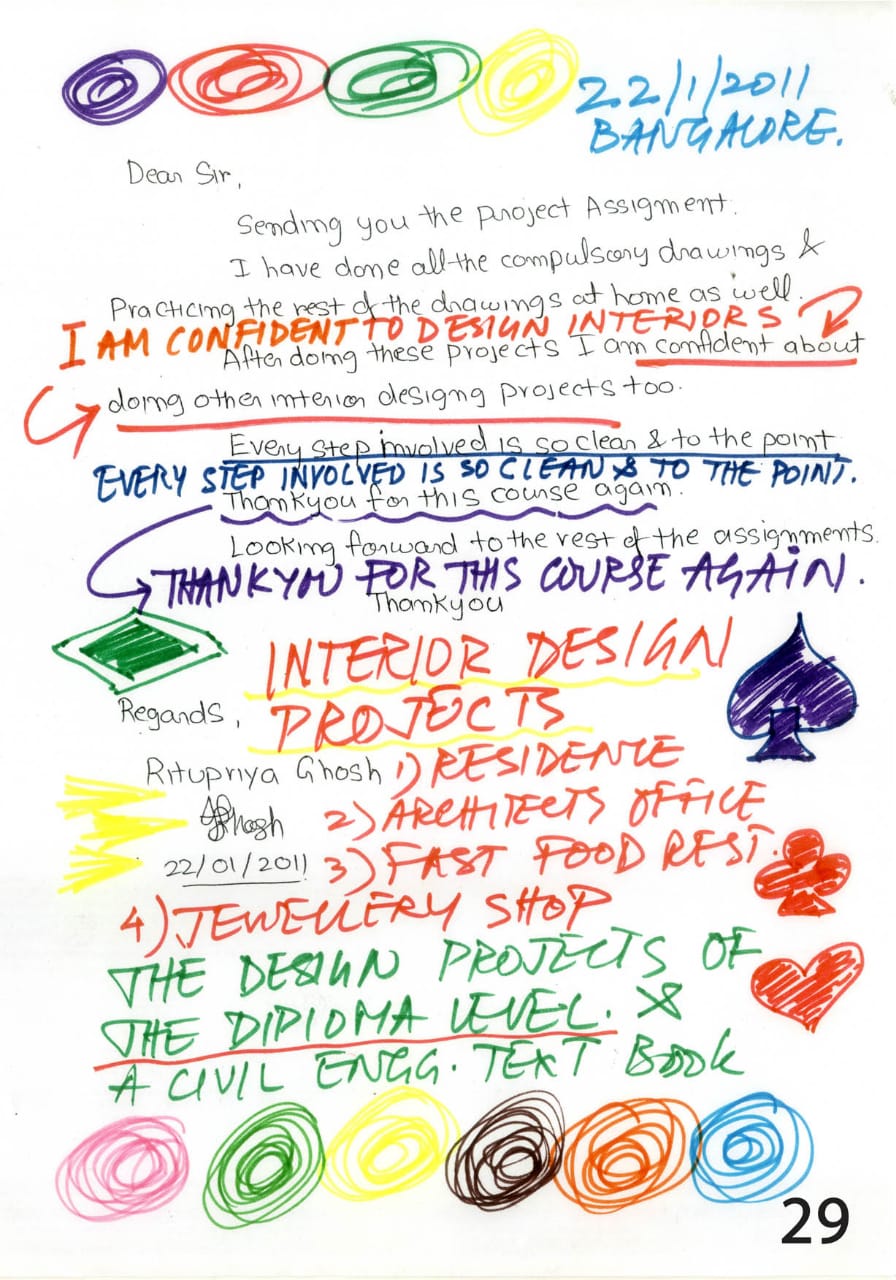 22/1/2011
BANGALORE.
Dear Sir,
Sending you the project Assignment.
I have done all the compulsory drawings &
Practicing the rest of the drawings at home as well.
I AM CONFIDENT TO DESIGN INTERIORS
After doing these projects I am confident about
doing other interior designg projects too.
Every step involved is so clear & to the point
EVERY STEP INVOLVED IS SO CLEAR & TO THE POINT.
Thankyou for this course again.
Looking forward to the rest of the assignments.
THANKYOU FOR THIS COURSE AGAIN.
Thankyou
INTERIOR DESIGN
Regards,
PROJECTS
Ritupriya Ghosh
1) RESIDENCE
2) ARCHITECTS OFFICE
Ghosh
22/01/2011
3) FAST FOOD REST.
4) JEWELLERY SHOP
THE DESIGN PROJECTS OF
THE DIPLOMA LEVEL. &
A CIVIL ENGG. TEXT BOOK
29